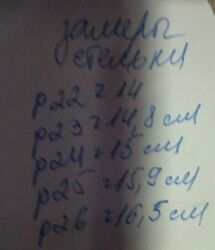 замеры
стельки
р22=14
р23=14,8см
р24=15см
р25=15,9см
р26=16,5см